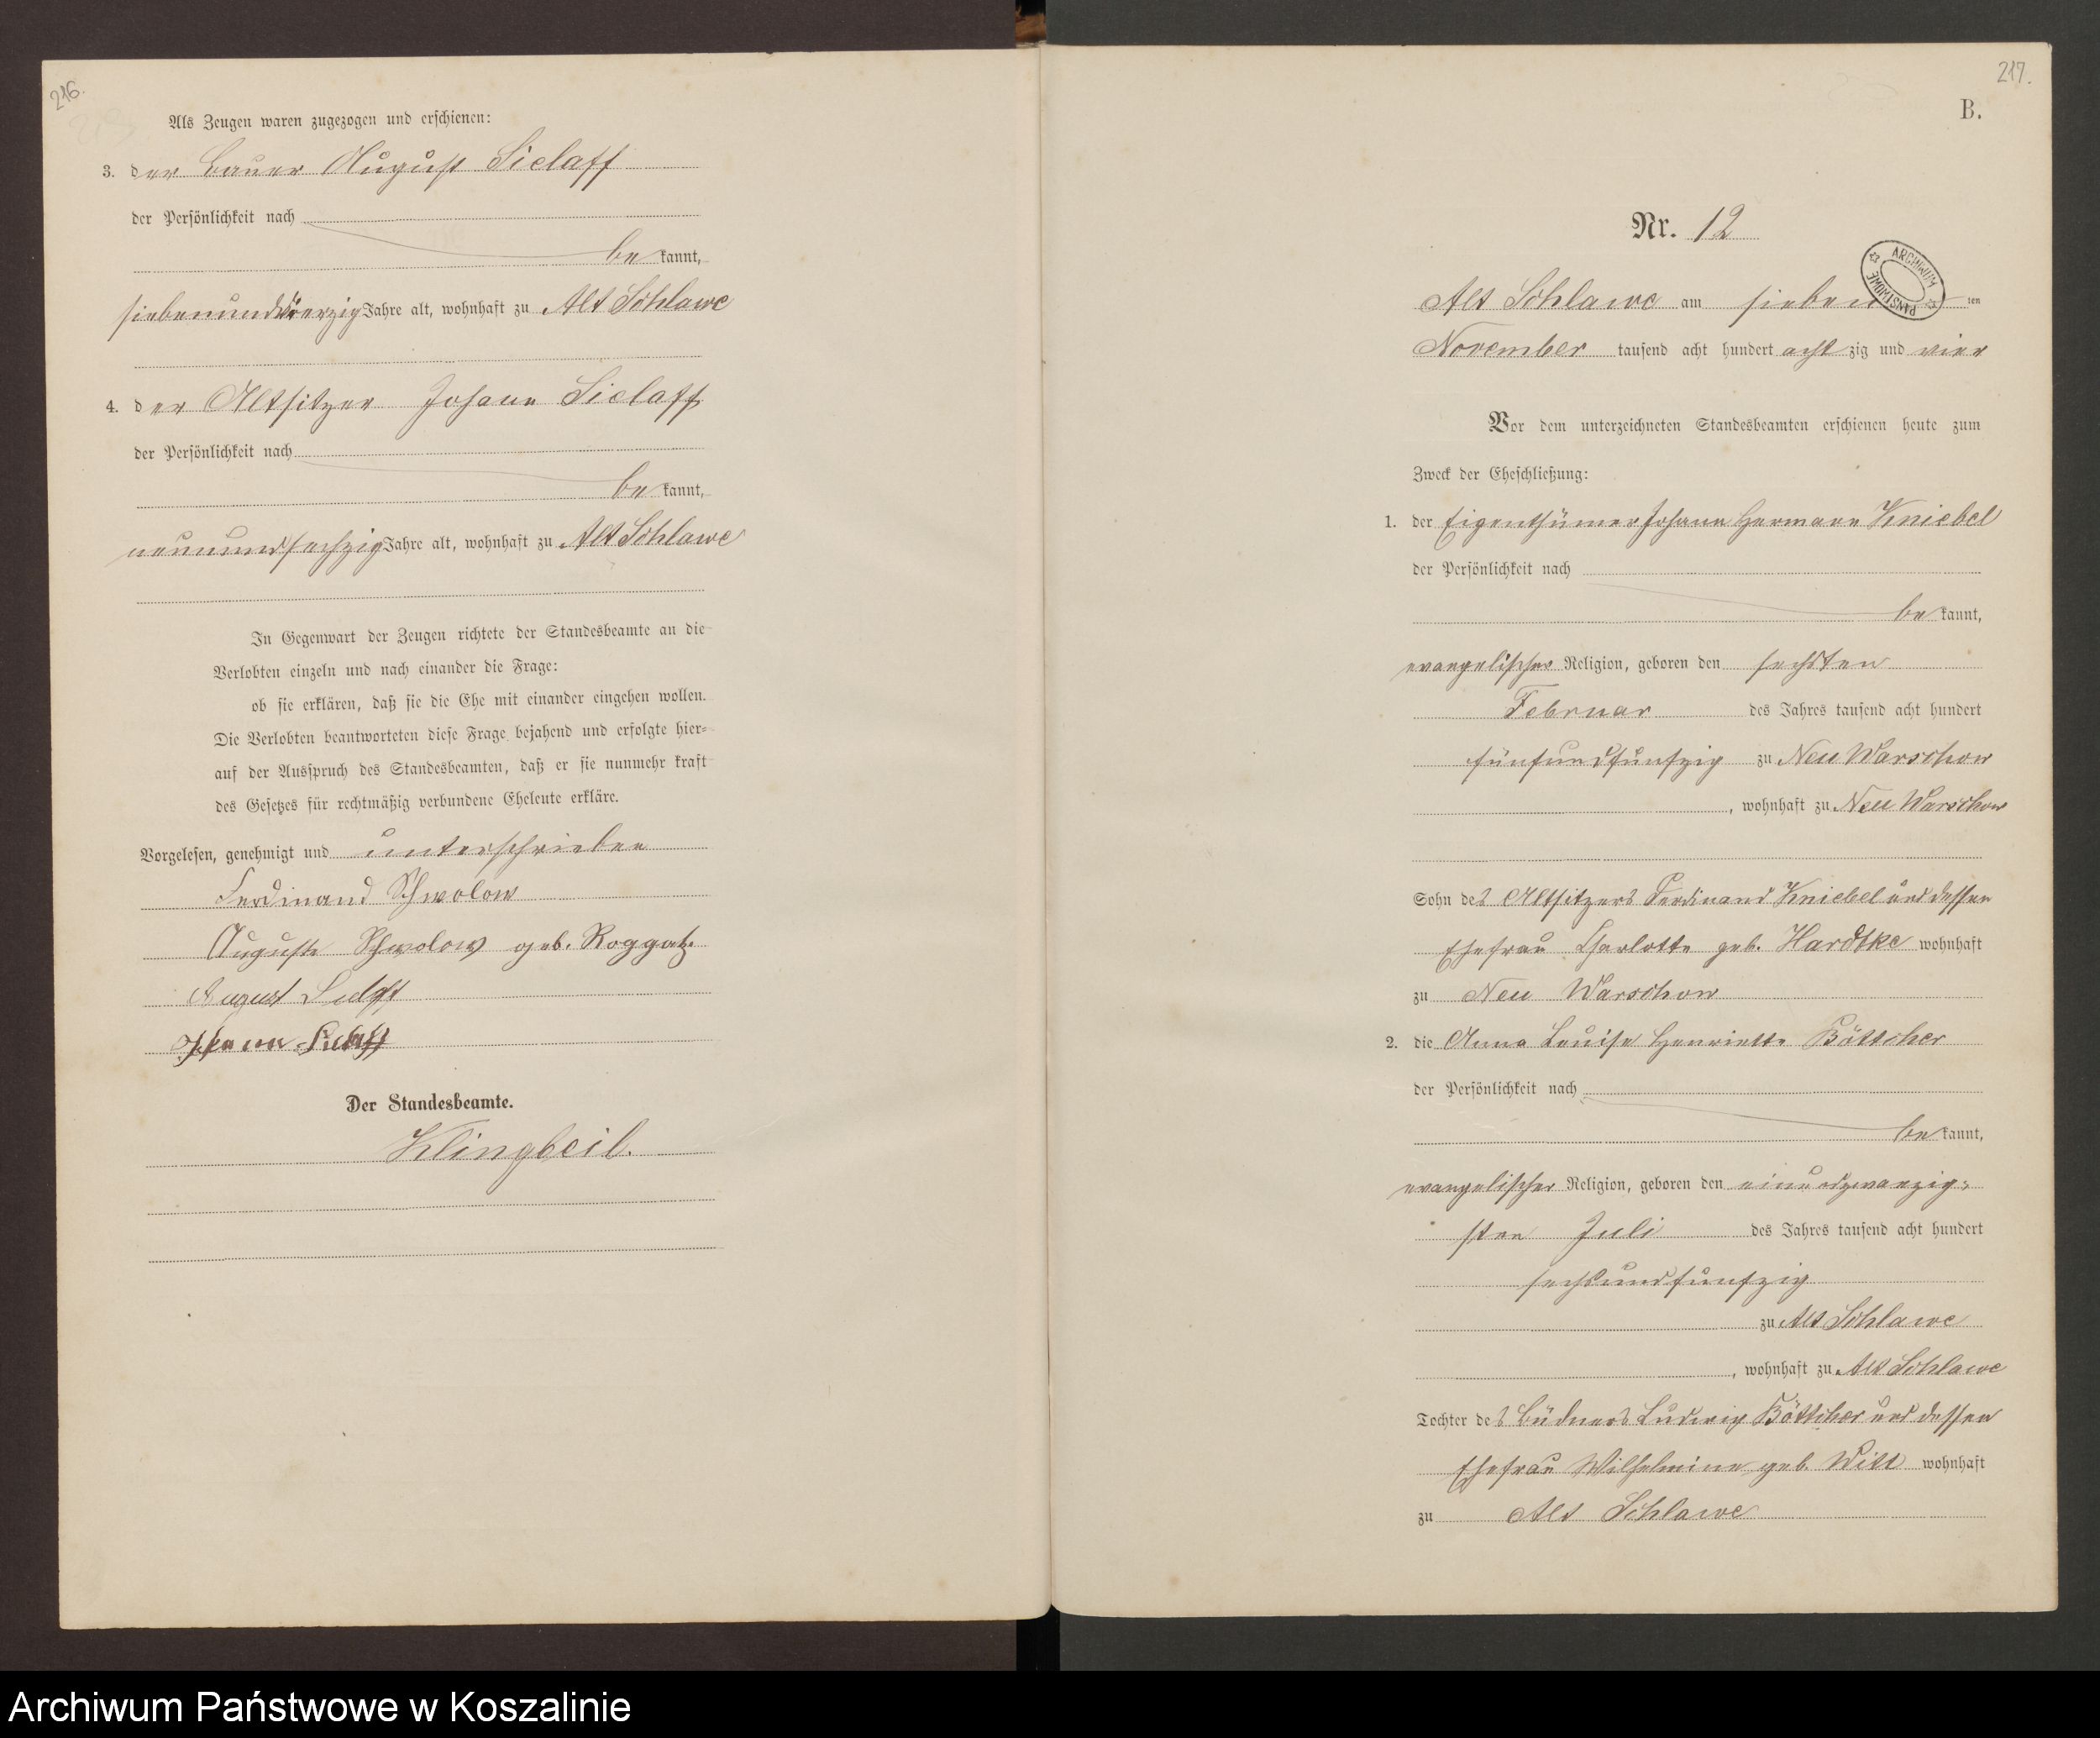 216.
Als Zeugen waren zugezogen und erschienen:
3. der Bauer August Sielaff
der Persönlichkeit nach
be kannt,
siebenundvierzig Jahre alt, wohnhaft zu Alt Schlawe
4. der Altsitzer Johann Sielaff
der Persönlichkeit nach
be kannt,
neunundsechzig Jahre alt, wohnhaft zu Alt Schlawe
In Gegenwart der Zeugen richtete der Standesbeamte an die
Verlobten einzeln und nach einander die Frage:
ob sie erklären, daß sie die Ehe mit einander eingehen wollen.
Die Verlobten beantworteten diese Frage bejahend und erfolgte hier-
auf der Ausspruch des Standesbeamten, daß er sie nunmehr kraft
des Gesetzes für rechtmäßig verbundene Eheleute erkläre.
Vorgelesen, genehmigt und unterschrieben
Ferdinand Schwolow
Auguste Schwolow geb. Roggatz.
August Sielaff
Johann Sielaff
Der Standesbeamte.
Klingbeil.
217.
B.
Nr. 12
ARCHIWUM PAŃSTWOWE
Alt Schlawe am sieben ten
November tausend acht hundert acht zig und vier
Vor dem unterzeichneten Standesbeamten erschienen heute zum
Zweck der Eheschließung:
1. der Eigenthümer Johann Hermann Kniebel
der Persönlichkeit nach
be kannt,
evangelischer Religion, geboren den sechsten
Februar des Jahres tausend acht hundert
fünfundfünfzig zu Neu Warschow
, wohnhaft zu Neu Warschow
Sohn des Altsitzers Ferdinand Kniebel und dessen
Ehefrau Charlotte geb. Hardtke wohnhaft
zu Neu Warschow
2. die Anna Louise Henriette Böttcher
der Persönlichkeit nach
be kannt,
evangelischer Religion, geboren den einundzwanzig-
sten Juli des Jahres tausend acht hundert
sechsundfünfzig
zu Alt Schlawe
, wohnhaft zu Alt Schlawe
Tochter des Büdners Ludwig Böttcher und dessen
Ehefrau Wilhelmine geb. Witt wohnhaft
zu Alt Schlawe
Archiwum Państwowe w Koszalinie